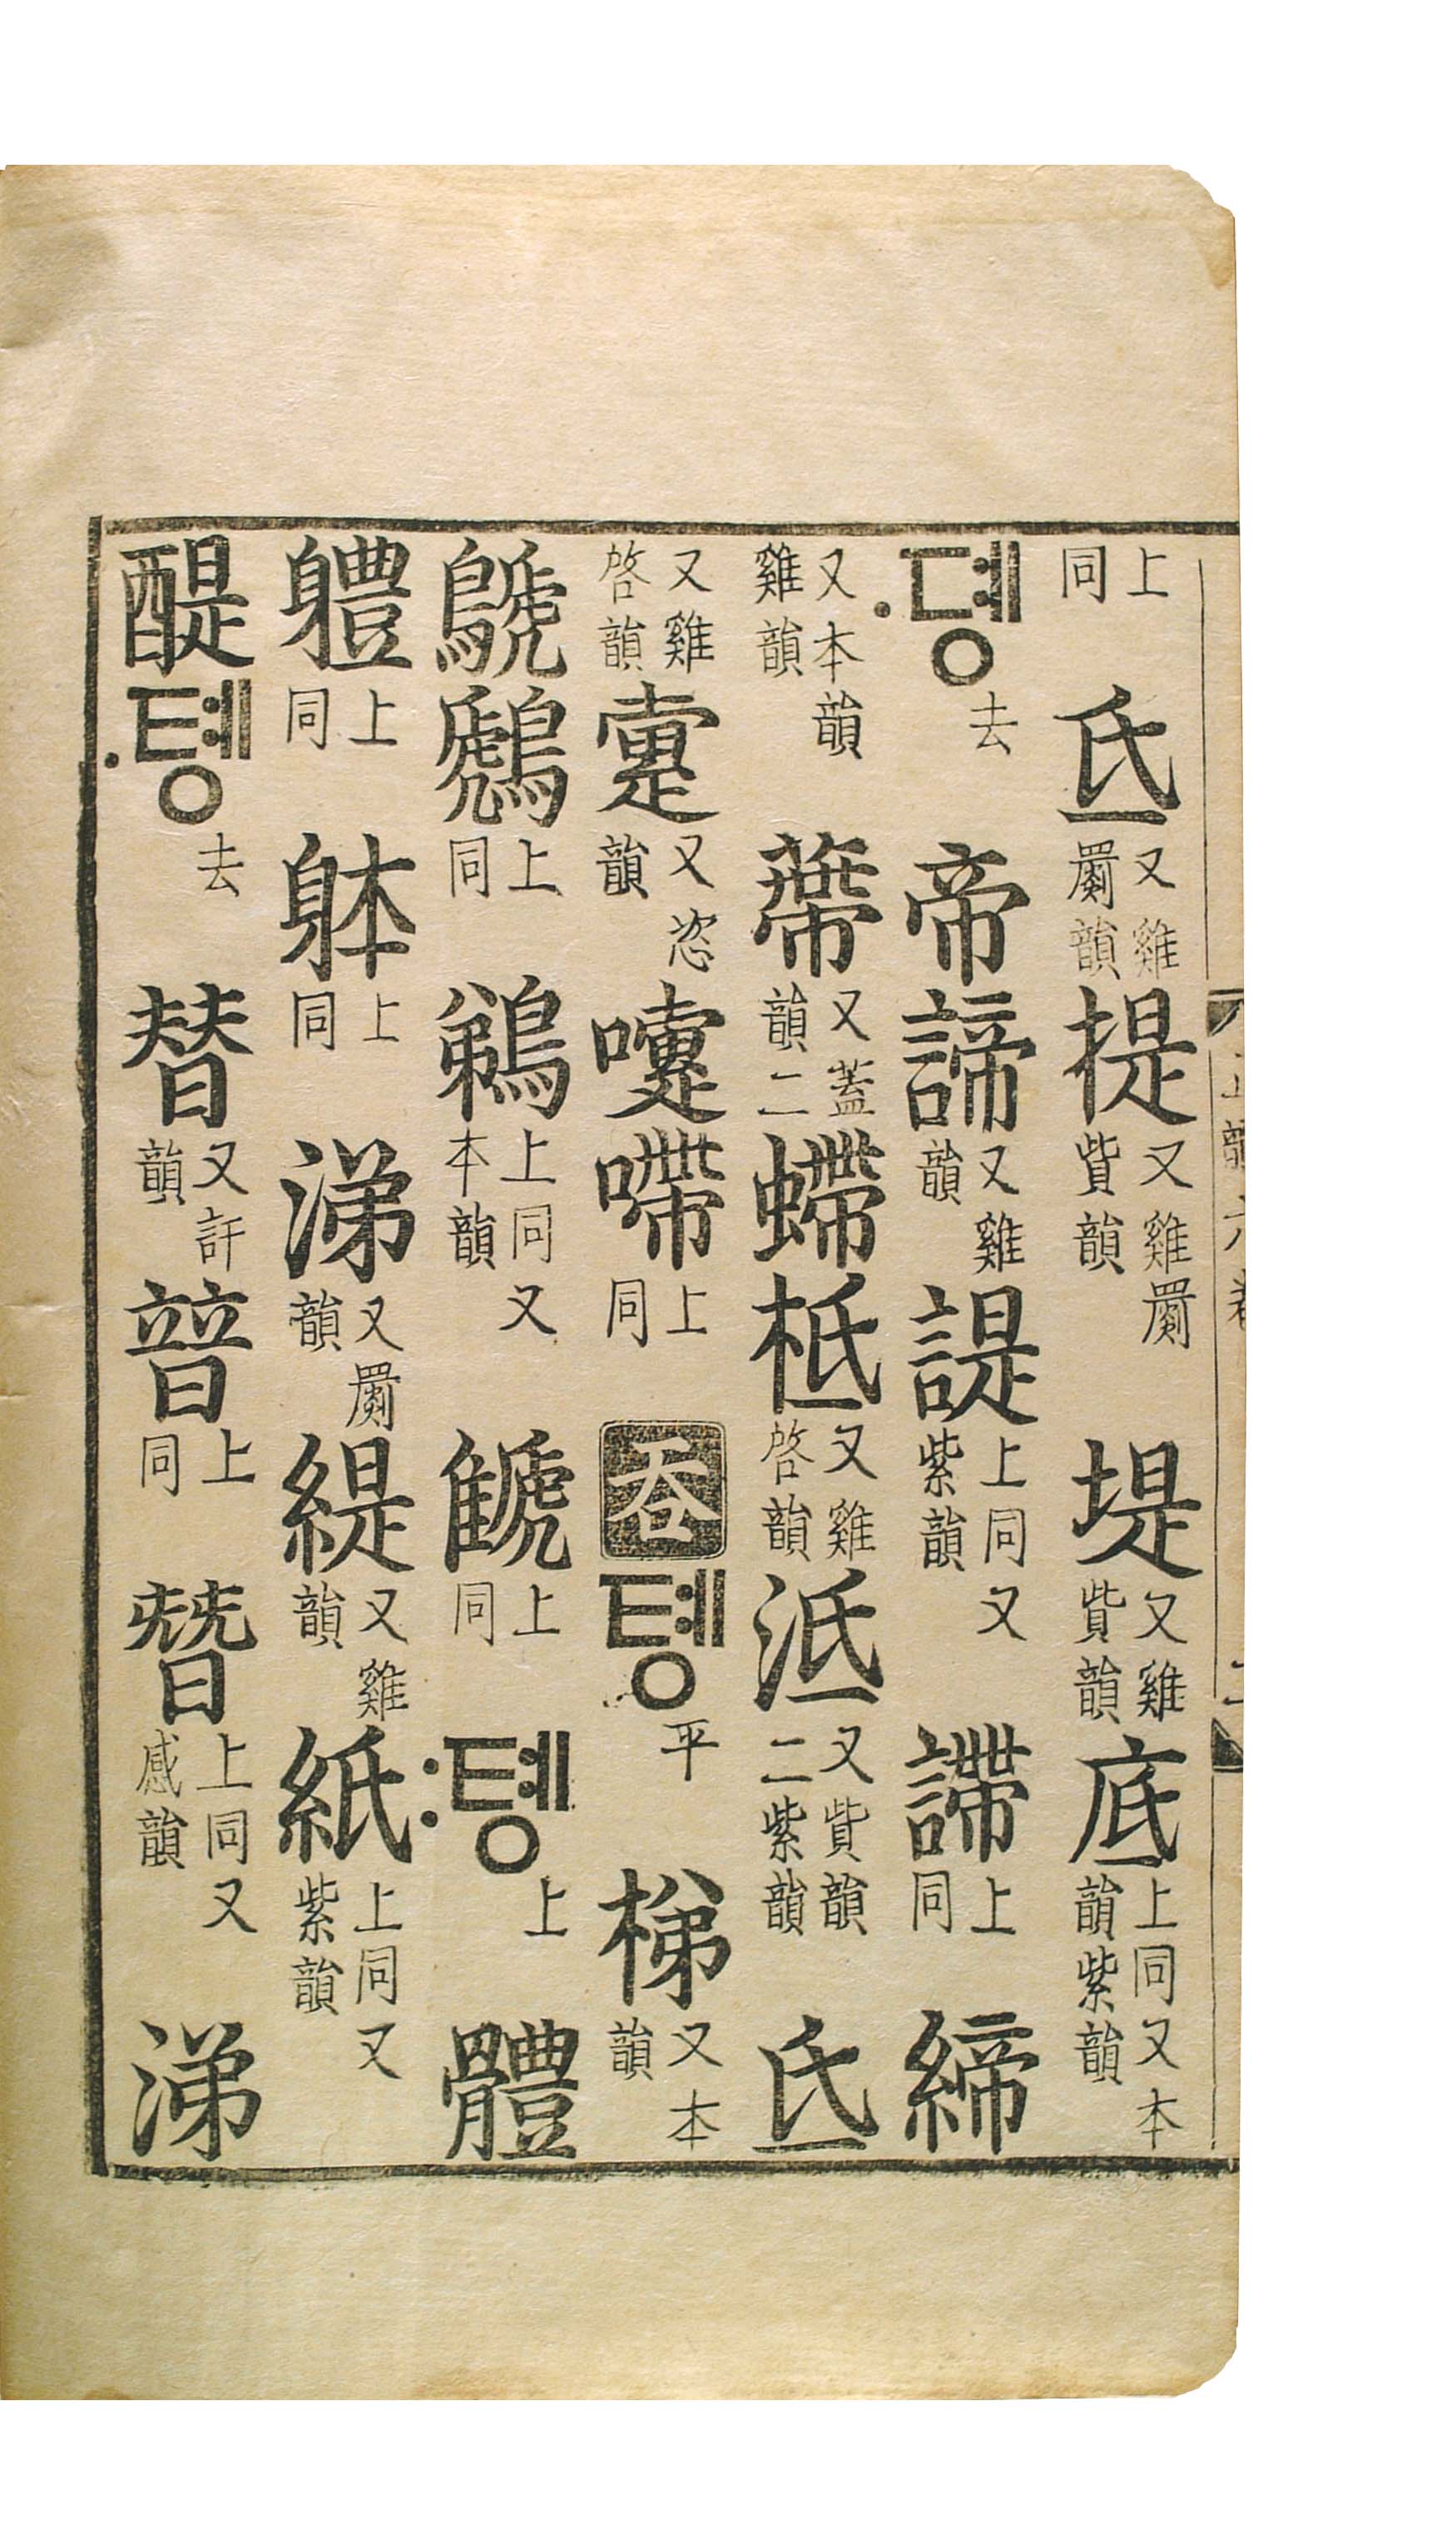 上同 氐 又雞罽韻 提 又雞罽貲韻 堤 又雞貲韻 底 上同又本韻紫韻
·뎽 去 帝 諦 又雞韻 諟 上同又紫韻 上同 締
又本韻雞韻 蔕 又蓋韻二 螮 柢 又雞啓韻 泜 又貲韻二紫韻 氐
又雞啓韻 疐 又恣韻 嚏 㗣 上同 吞 톙 平 梯 又本韻
鷈 鷉 上同 鵜 上同又本韻 上同 :톙 上 體
軆 上同 躰 上同 涕 又罽韻 緹 又雞韻 紙 上同又紫韻
醍 ·톙 去 替 又訐韻 暜 上同 朁 上同又感韻 涕